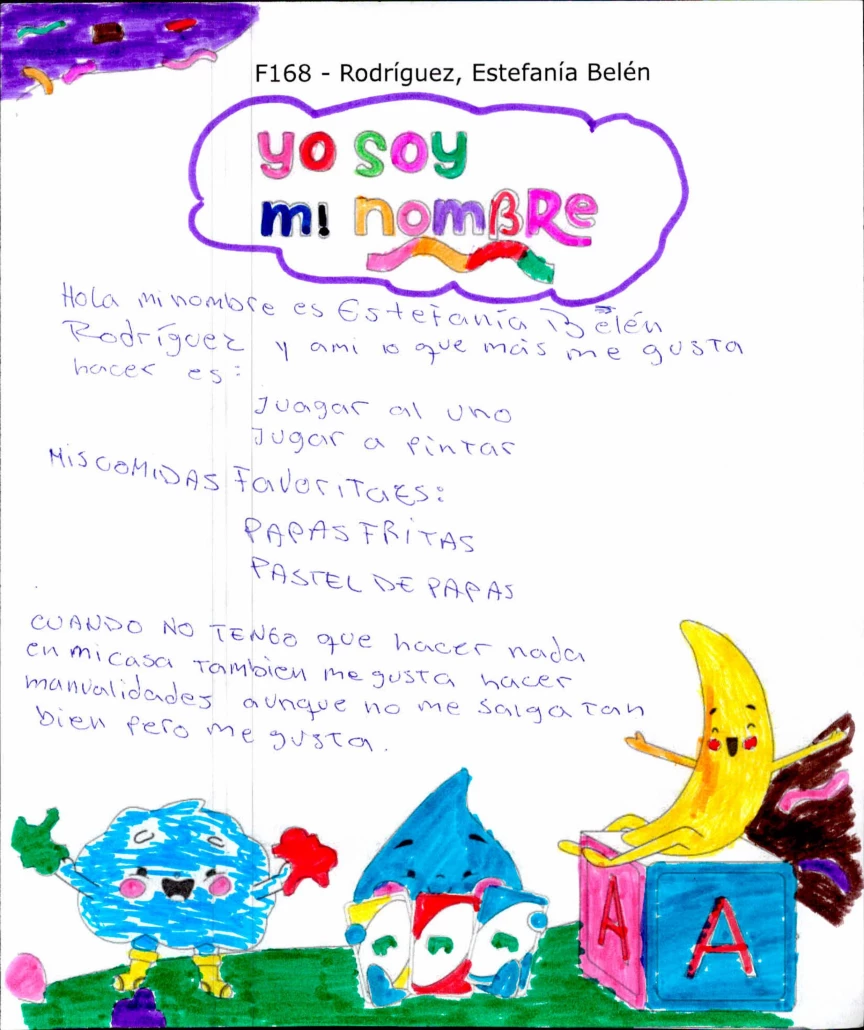 F168 - Rodríguez, Estefanía Belén
yo soy
mi nomBRe
Hola mi nombre es Estefanía Belén
Rodríguez y ami lo que más me gusta
hacer es:
Juagar al uno
Jugar a Pintar
MIS COMIDAS FavoriTaEs:
PAPAS FRiTAS
PASTEL DE PAPAS
CUANDO NO TENGO que hacer nada
en mi casa Tambien me gusta hacer
manualidades aunque no me salga Tan
bien Pero me gusta.
A A